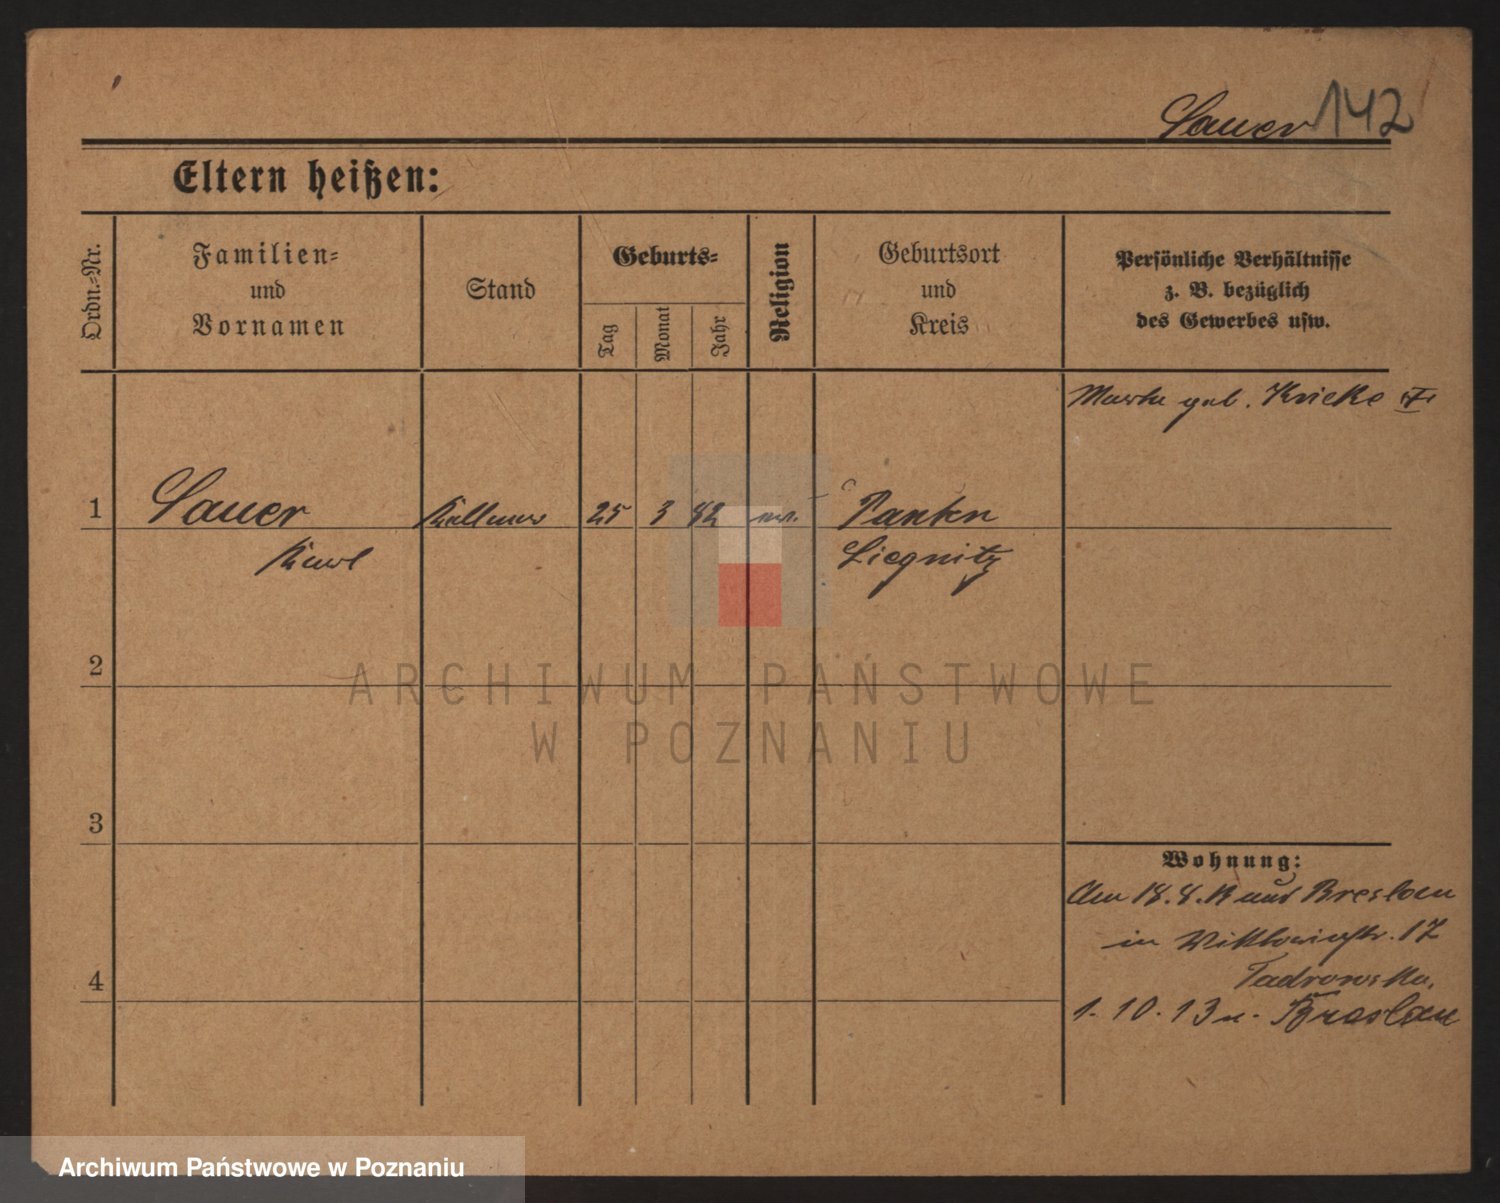 Sauer 142
Eltern heißen:
Ordn.-Nr.
Familien-
und
Vornamen
Stand
Geburts-
Tag
Monat
Jahr
Religion
Geburtsort
und
Kreis
Persönliche Verhältnisse
z. B. bezüglich
des Gewerbes usw.
geb. Kricke
1 Sauer Kellner 25 3 82 ev. Panten
Karl Liegnitz
2
ARCHIWUM PAŃSTWOWE
W POZNANIU
3
Wohnung:
Am 18. 8. 13 aus Breslau
in Viktoriastr. 17
4
1. 10. 13 n. Breslau
Archiwum Państwowe w Poznaniu